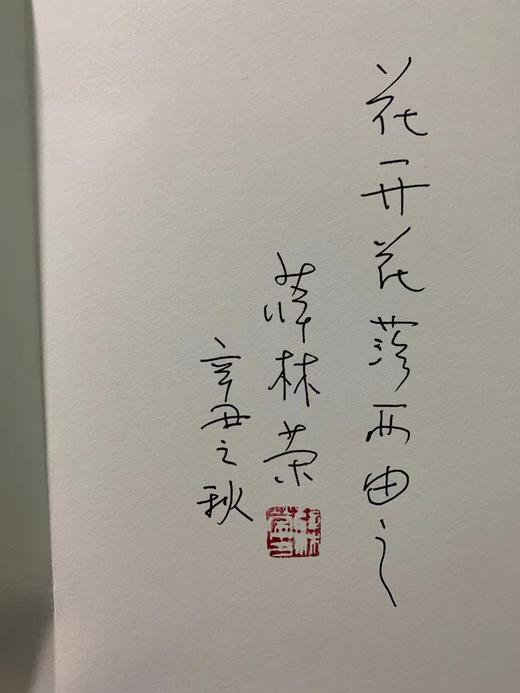 花开花落两由之
薛林荣
辛丑之秋